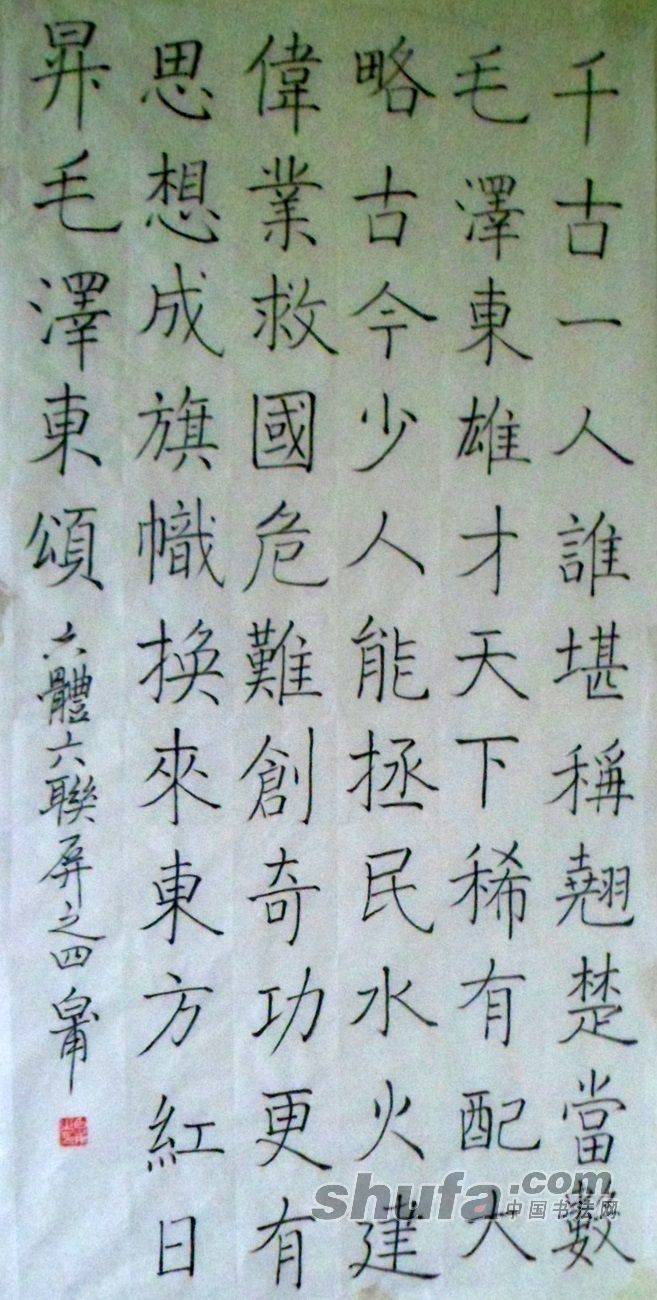 千古一人誰堪稱翹楚當數
毛澤東雄才天下稀有配大
略古今少人能拯民水火建
偉業救國危難創奇功更有
思想成旗幟換來東方紅日
昇毛澤東頌
六體六聯屏之四
shufa.com
中国书法网